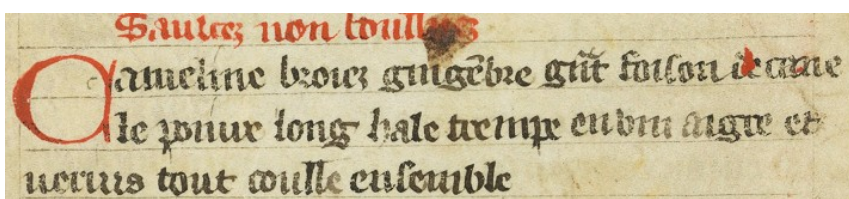 Saulcez non
Cameline broiez gingēbre gñt foison de cane
le poiure long hale trempe en vin aigre et
ueriuis tout coulle ensemble